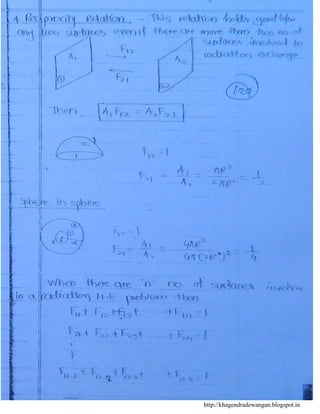 A Reciprocity Relation - This relation holds good b/w
any two surfaces even if there are more than two no of
surfaces involved in
radiation exchange.
A₁ F₁₂ A₂
F₂₁
129
Then, A₁F₁₂ = A₂F₂₁
2
1
F₁₂ = 1
F₂₁ = A₁/A₂ = πR²/2πR² = 1/2
Sphere in sphere
F₁₂ = 1
F₂₁ = A₁/A₂ = 4πR²/4π(2R)² = 1/4
When there are 'n' no. of surfaces involve
in a radiation H.E problem then
F₁₁ + F₁₂ + F₁₃ + ..... + F₁ₙ = 1
F₂₁ + F₂₂ + F₂₃ + ..... + F₂ₙ = 1
http://khagendradewangan.blogspot.in